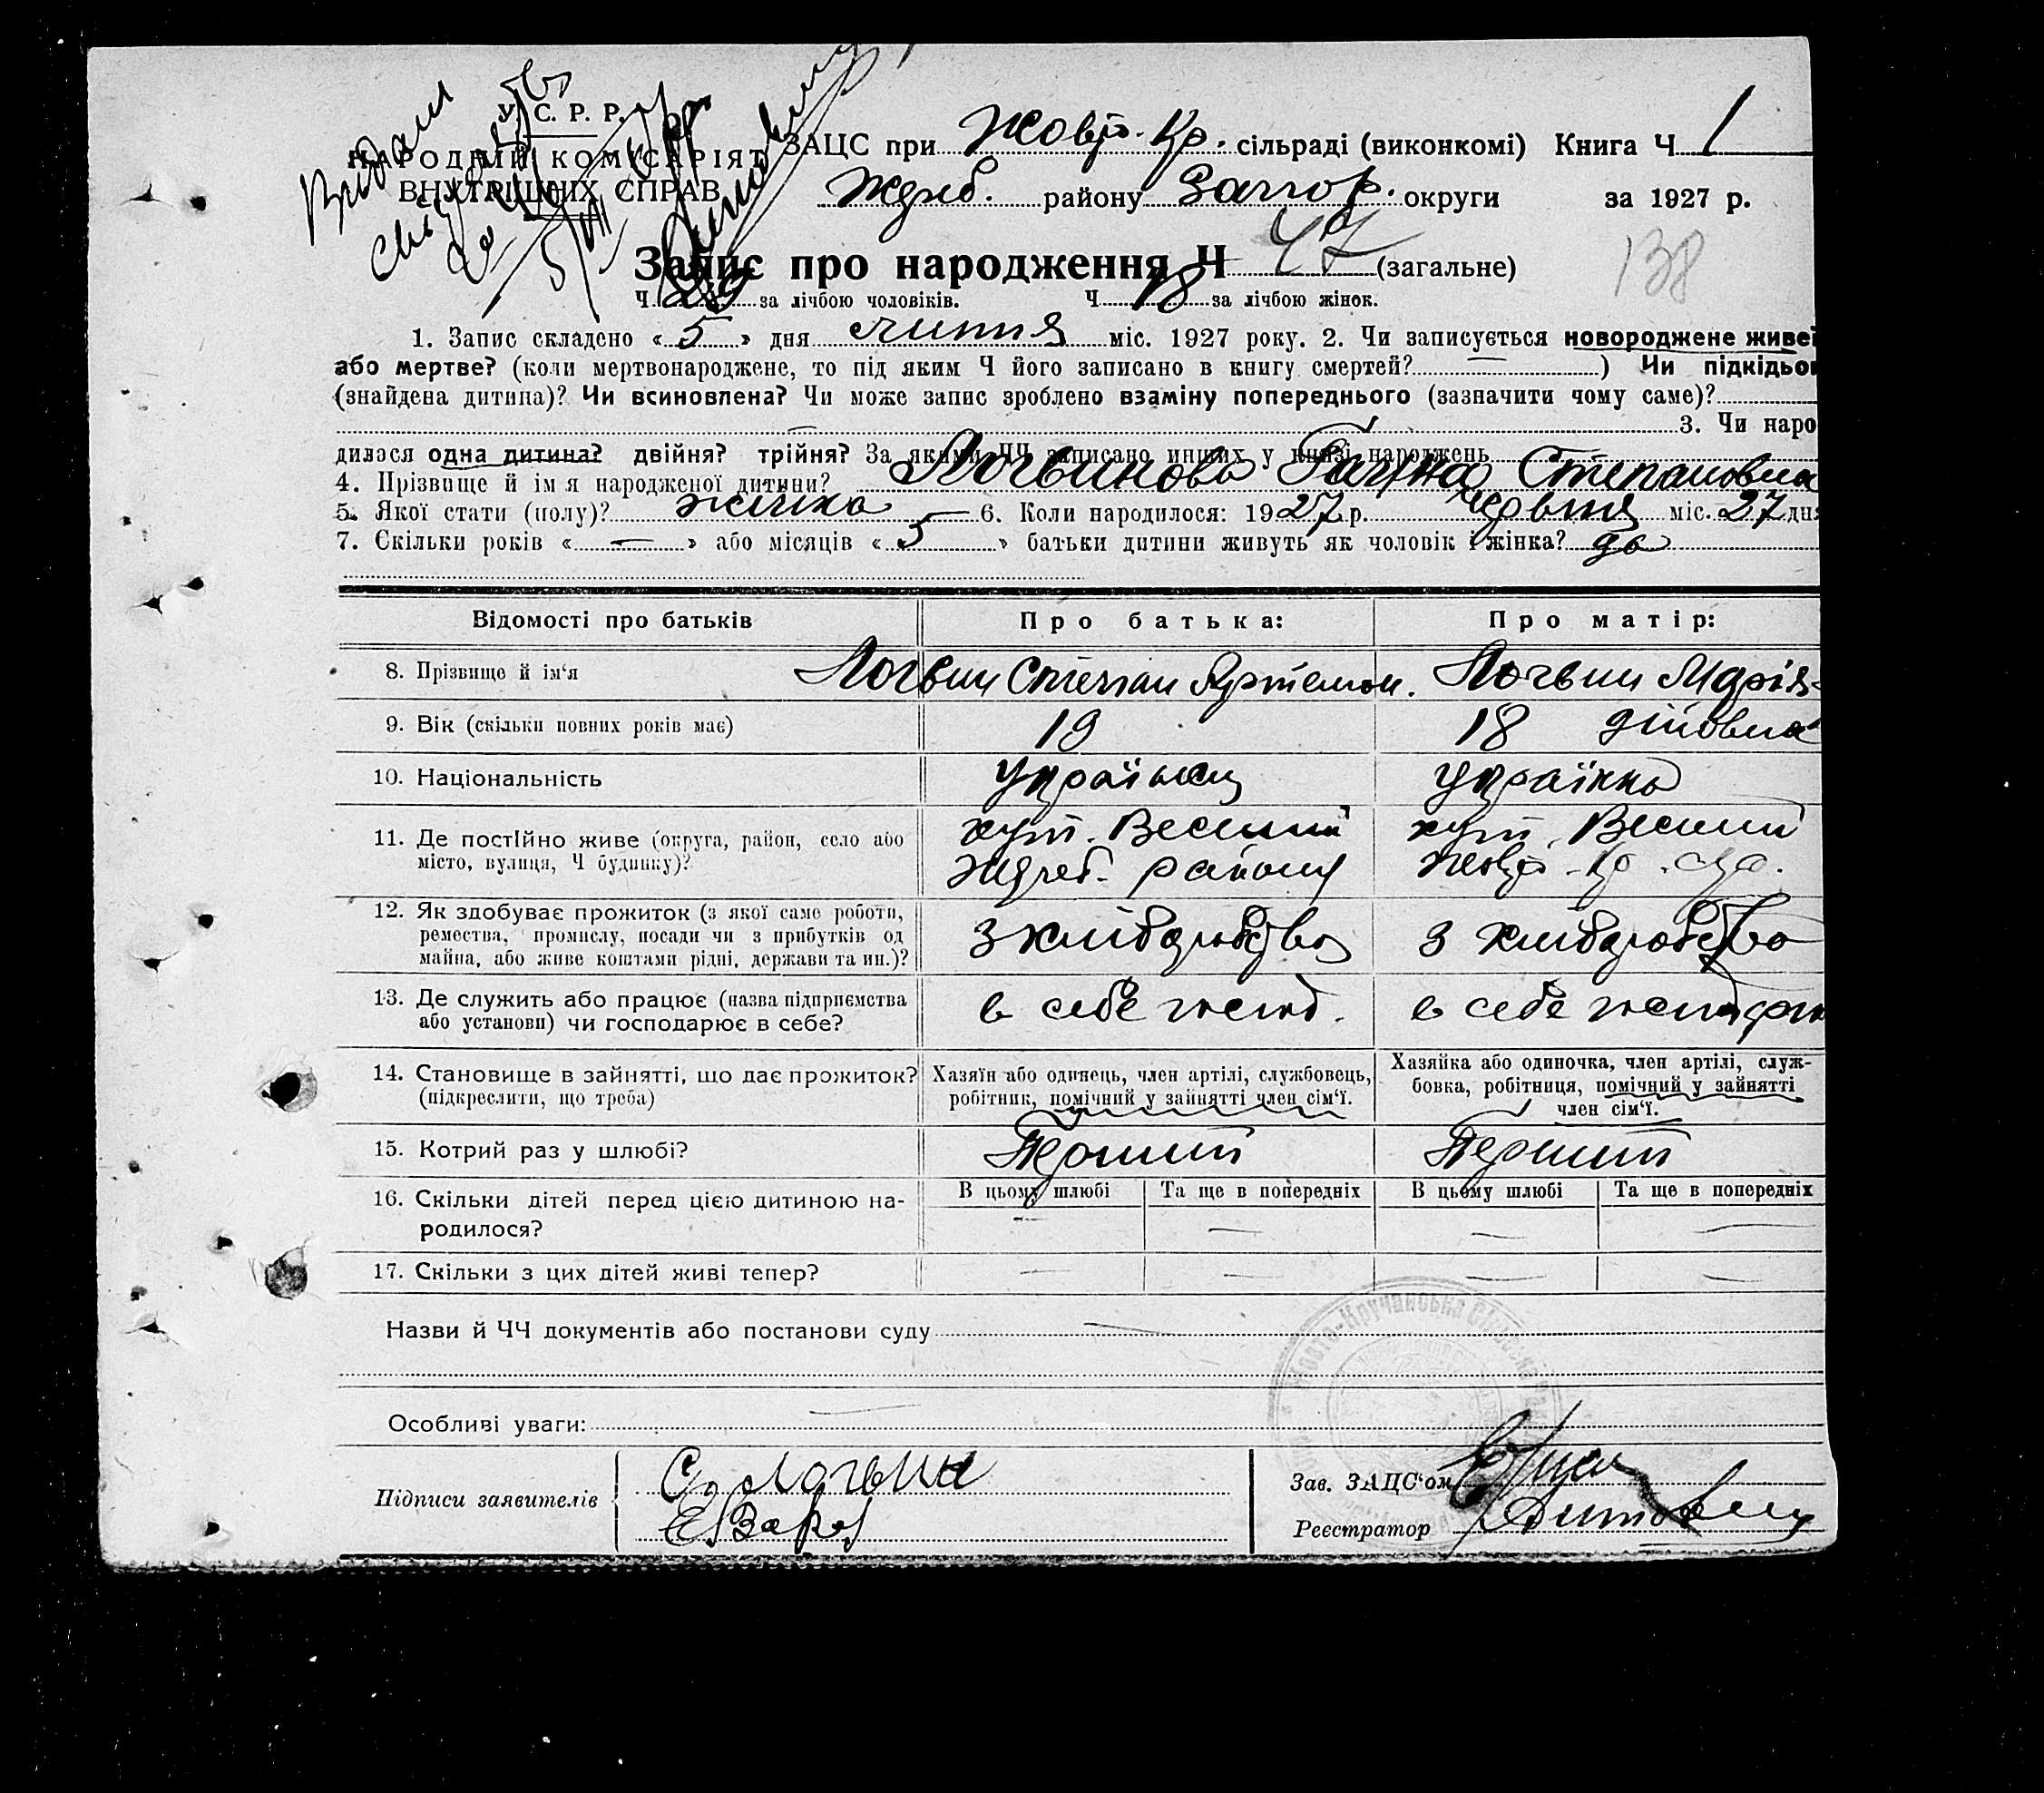 Видани
У. С. Р. Р.
НАРОДНІЙ КОМІСАРІЯТ
ВНУТРІШНІХ СПРАВ
ЗАЦС при Жовт. Кр. сільраді (виконкомі) Книга Ч 1
району Запор. округи за 1927 р.
Запис про народження Ч 47 (загальне)
138
Ч 29 за лічбою чоловіків. Ч 18 за лічбою жінок.
1. Запис складено « 5 » дня липня міс. 1927 року. 2. Чи записується новороджене живе
або мертве? (коли мертвонароджене, то під яким Ч його записано в книгу смертей? — ) Чи підкідьо
(знайдена дитина)? Чи всиновлена? Чи може запис зроблено взаміну попереднього (зазначити чому саме)?
— 3. Чи наро
дилася одна дитина? двійня? трійня? За якими ЧЧ записано инших у книзі народжень
4. Прізвище й ім я народженої дитини? Логвинова Галина Степановна
5. Якої стати (полу)? жінка 6. Коли народилося: 1927 р. червня міс. 27 дня
7. Скільки років « — » або місяців « 5 » батьки дитини живуть як чоловік і жінка? да
Відомості про батьків Про батька: Про матір:
8. Прізвище й ім‘я Логвин Степан Артемон. Логвин Марія
9. Вік (скільки повних років має) 19 18
10. Національність Українец Українка
11. Де постійно живе (округа, район, село або
місто, вулиця, Ч будинку)?
хут. Веселий хут. Веселий
району
12. Як здобуває прожиток (з якої саме роботи,
ремества, промислу, посади чи з прибутків од
майна, або живе коштами рідні, держави та ин.)?
з хлібаробства з хлібаробства
13. Де служить або працює (назва підприємства
або установи) чи господарює в себе?
в себе в себе
14. Становище в зайнятті, що дає прожиток?
(підкреслити, що треба)
Хазяїн або одинець, член артілі, службовець,
робітник, помічний у зайнятті член сім‘ї.
Хазяйка або одиночка, член артілі, служ-
бовка, робітниця, помічний у зайнятті
член сім‘ї.
15. Котрий раз у шлюбі? Перший Перший
16. Скільки дітей перед цією дитиною на-
родилося?
В цьому шлюбі Та ще в попередніх В цьому шлюбі Та ще в попередніх
— — — —
17. Скільки з цих дітей живі тепер? — — — —
Назви й ЧЧ документів або постанови суду —
Особливі уваги: —
Підписи заявителів
С. Логвин
Зав. ЗАЦС‘ом
Реєстратор